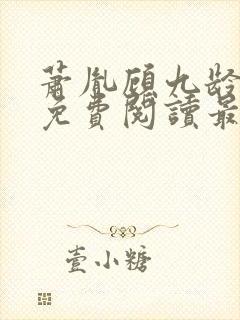 萧胤顾九龄
免费阅读最
壹小糖